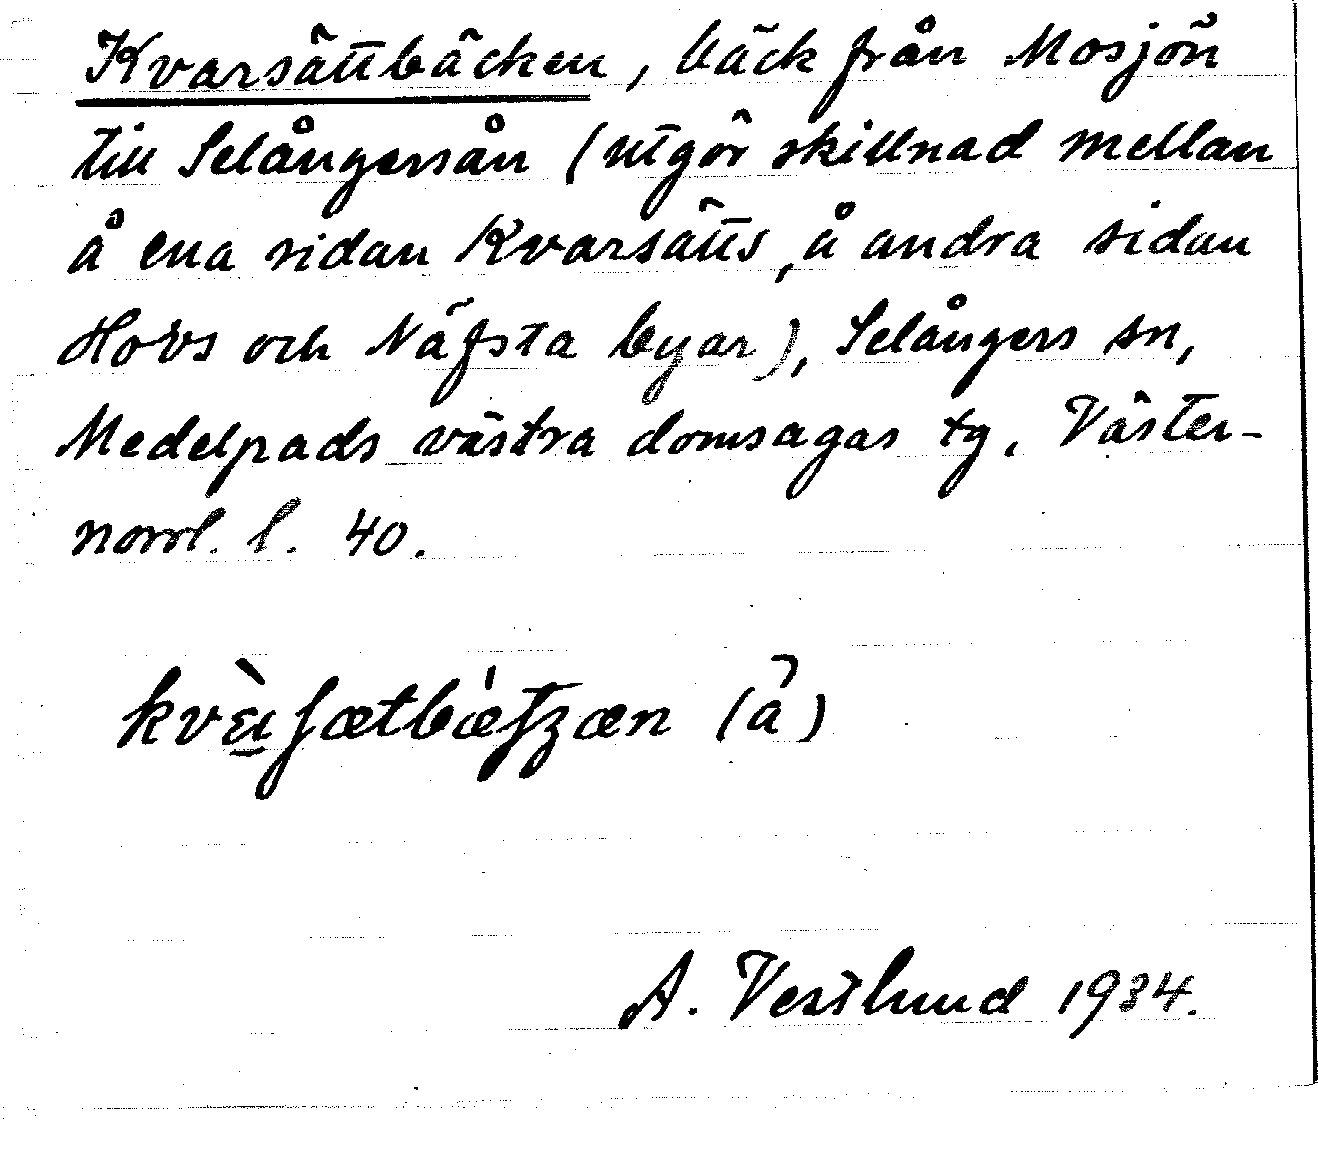 Kvarsättbäcken, bäck från Mosjön
till Selångersån (utgör skillnad mellan
å ena sidan Kvarsätts, å andra sidan
Hovs och Näfsta byar), Selångers sn,
Medelpads västra domsagas tg. Väster-
norrl. l. 40.
(å)
A. Vestlund 1934.